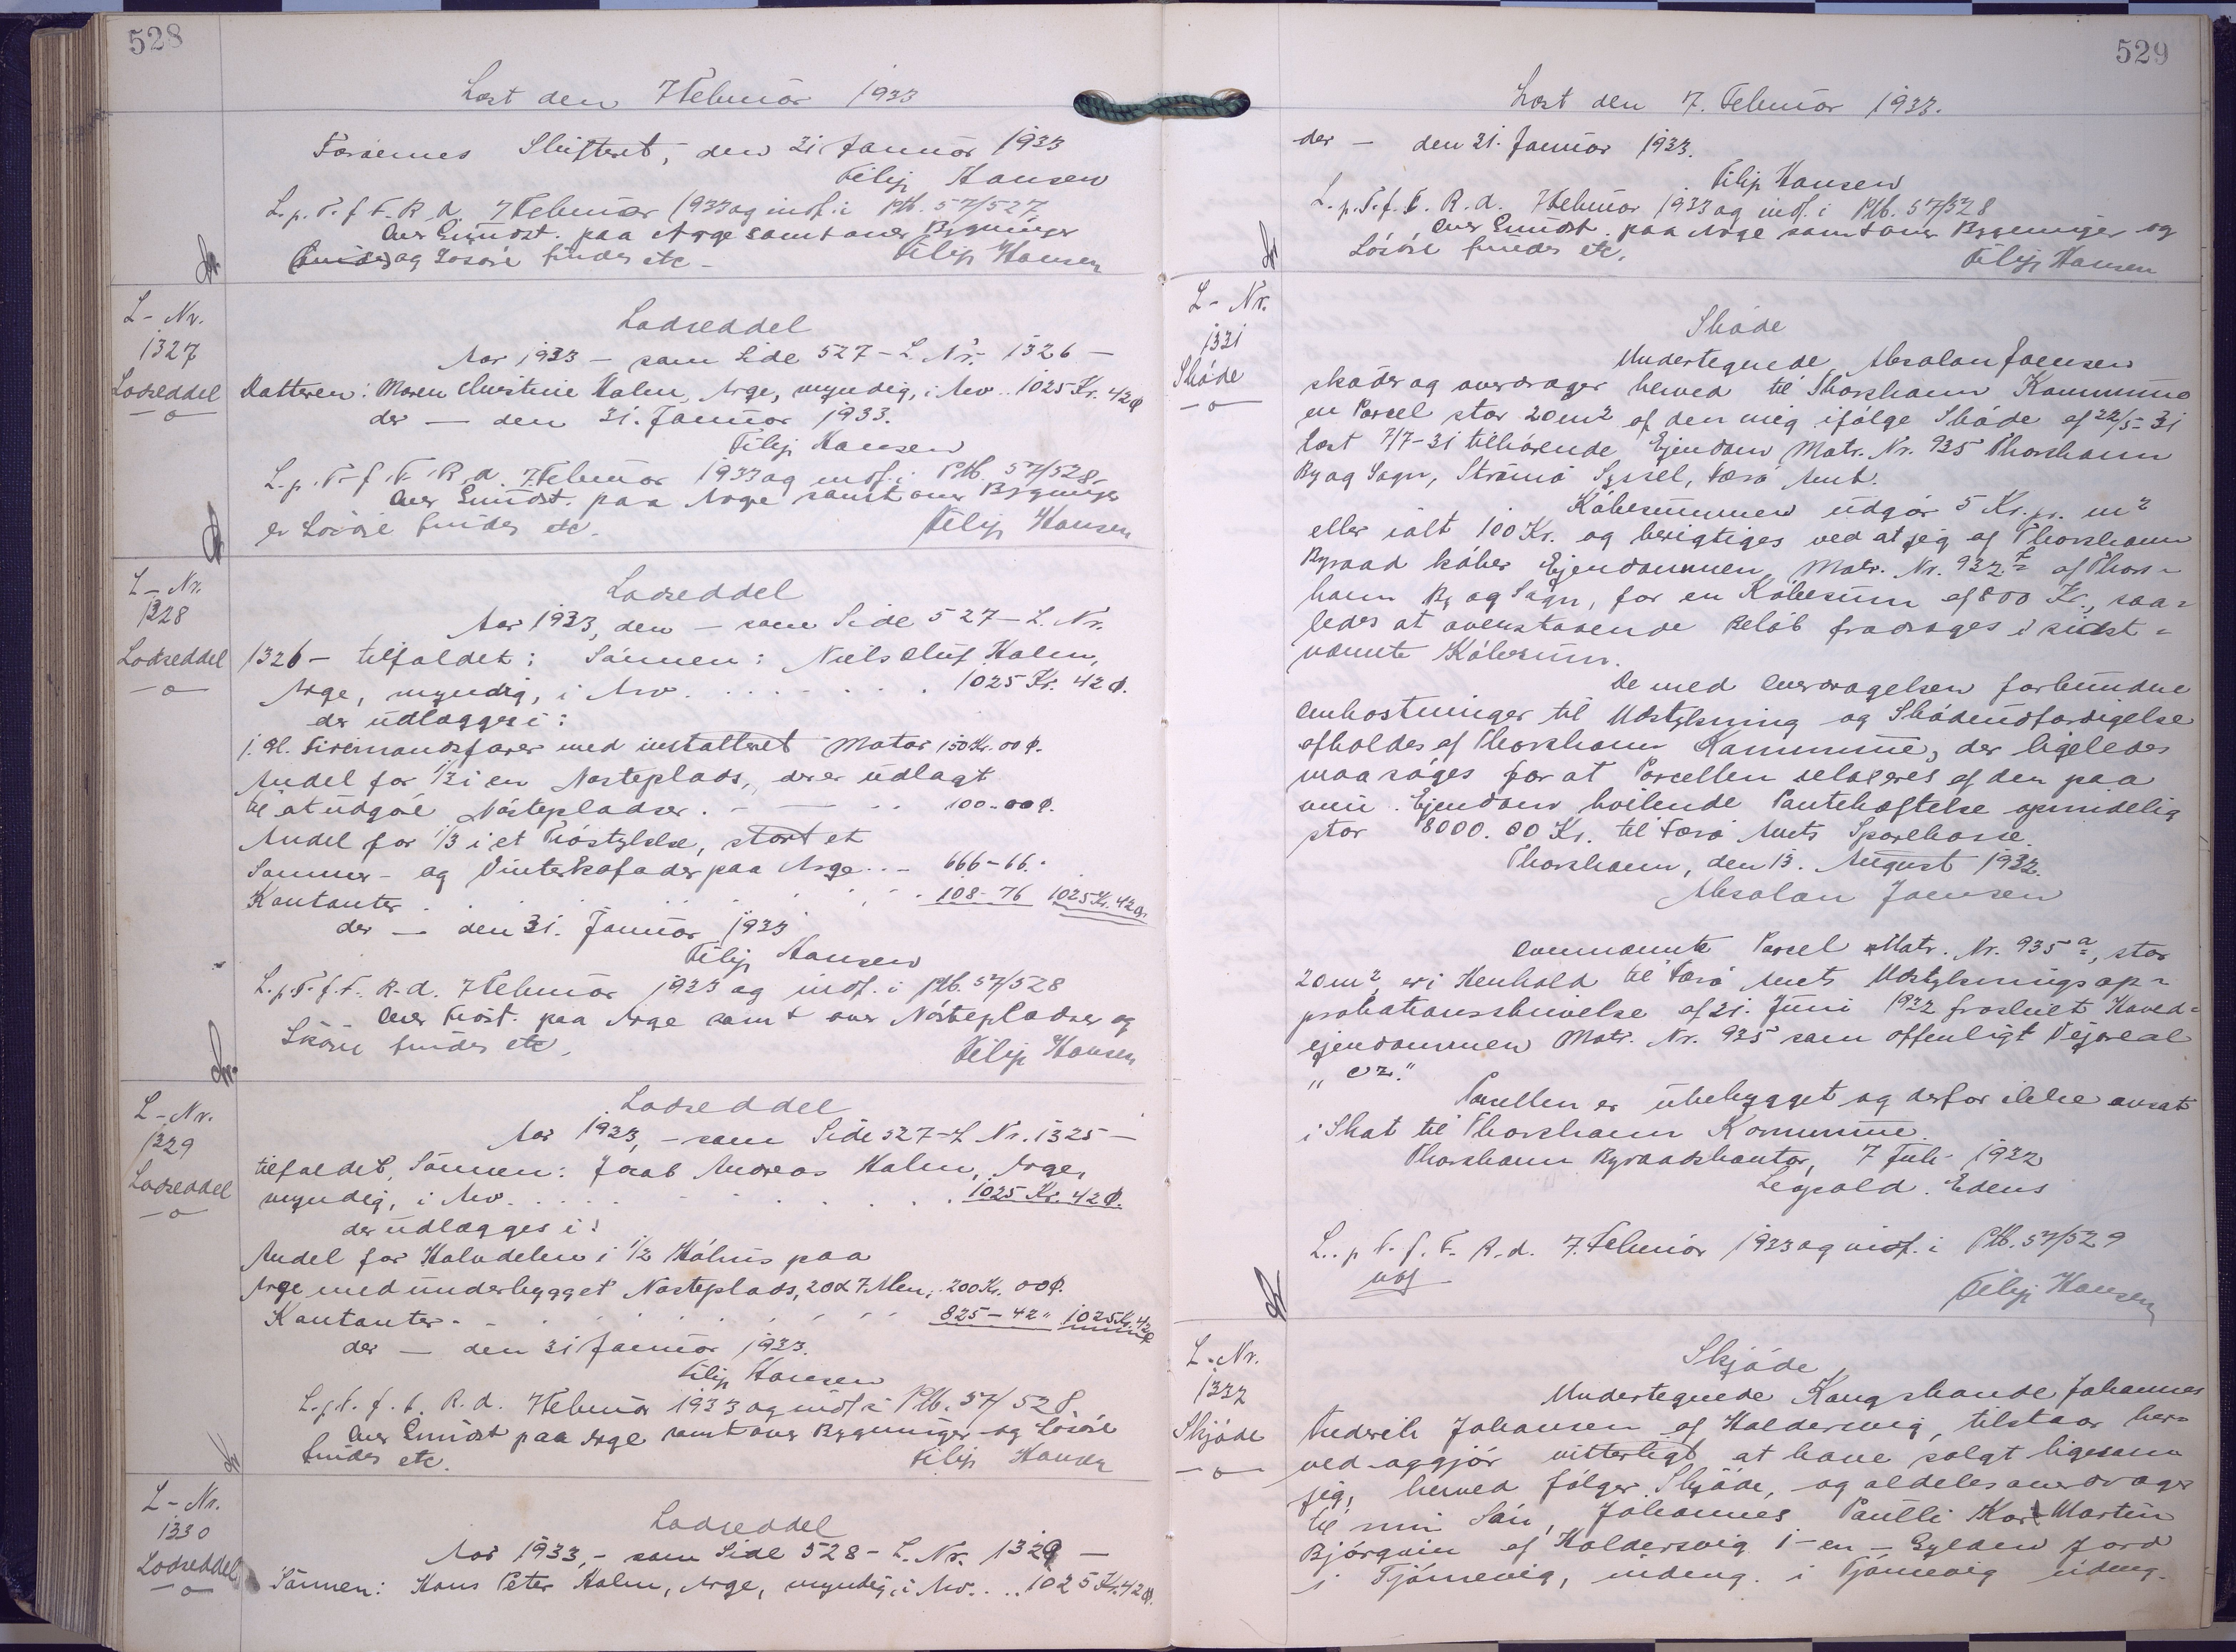 528
Læst den 7 Februar 1933
Færøernes Skifteret, den 31 Januar 1933
Filip Hansen
L. p. T. f. F. R. d. 7 Februar 1933 og indf. i Ptb. 57/527
Over Grundst. paa Arge samt over Bygninger
og Løsøre findes etc.
Filip Hansen
L-Nr.
1327
Lodseddel
Lodseddel
Aar 1933 - som Side 527 - L. Nr. 1326 -
Datteren: Maren Christine Holm, Arge, myndig, i Arv .. 1025 Kr. 42 Ø
der - den 31. Januar 1933.
Filip Hansen
L. p. T. f. F. R. d. 7 Februar 1933 og indf. i Ptb. 57/528
Over Grundst. paa Arge samt over Bygninger
og Løsøre findes etc.
Filip Hansen
L-Nr.
1328
Lodseddel
Lodseddel
Aar 1933, den - som Side 527 - L. Nr.
1326 - tilfaldet: Sønnen: Niels Oluf Holm,
Arge, myndig, i Arv . . . . . . . 1025 Kr. 42 Ø.
der udlægges i:
1. Gl. Firemandsfarer med installeret Motor 150 Kr. 00 Ø.
Andel for 1/3 i en Nøsteplads, der er udlagt
til at udgøre Nøstepladser . - - .. 100-00 Ø.
Andel for 1/3 i et Trøstykke, stort et
Sommer- og Vinterkofoder paa Arge .. - 666-66.
Kontanter . . . . . . . 108-76 1025 Kr. 42 Ø.
der - den 31. Januar 1933
Filip Hansen
L. p. T. f. F. R. d. 7 Februar 1933 og indf. i Ptb. 57/528
Over Trøst. paa Arge samt over Nøstepladser og
Løsøre findes etc.
Filip Hansen
L-Nr.
1329
Lodseddel
Lodseddel
Aar 1933, - som Side 527 - L Nr. 1325 -
tilfaldet, Sønnen: Jacob Andreas Holm, Arge,
myndig, i Arv . . . . . . . 1025 Kr. 42 Ø.
der udlægges i:
Andel for Halvdelen i 1/2 Hølhus paa
Arge med underbygget Nøsteplads, 20 x 7 Alen, 200 Kr. 00 Ø.
Kontanter . . . . . . . 825-42 " 1025 Kr. 42 Ø
der - den 31 Januar 1933.
Filip Hansen
L. p. T. f. F. R. d. 7 Februar 1933 og indf. i Ptb. 57/528
Over Grundst paa Arge samt over Bygninger og Løsøre
findes etc.
Filip Hansen
L-Nr.
1330
Lodseddel
Lodseddel
Aar 1933, - som Side 528 - L. Nr. 1329 -
Sønnen: Hans Peter Holm, Arge, myndig, i Arv . . .. 1025 Kr. 42 Ø.
529
Læst den 7. Februar 1933.
der - den 31. Januar 1933.
Filip Hansen
L. p. T. f. F. R. d. 7 Februar 1933 og indf. i Ptb. 57/528
Over Grundst. paa Arge samt over Bygninger og
Løsøre findes etc.
Filip Hansen
L-Nr.
1331
Skøde
Skøde
Undertegnede, Absalon Joensen
skøder og overdrager herved til Thorshavn Kommune
en Parcel stor 20 m2 af den mig ifølge Skøde af 22/5-31
læst 7/7-31 tilhørende Ejendom Matr. Nr. 935 Thorshavn
By og Sogn, Strømø Syssel, Færø Amt.
Købesummen udgør 5 Kr. pr. m2
eller ialt 100 Kr. og berigtiges ved at jeg af Thorshavn
Byraad køber Ejendommen Matr. Nr. 932 f af Thors-
havn By og Sogn, for en Købesum af 800 Kr., saa-
ledes at ovenstaaende Beløb fradrages i sidst-
nævnte Købesum.
De med Overdragelsen forbundne
Omkostninger til Udstykning og Skødeudfærdigelse
afholdes af Thorshavn Kommune, der ligeledes
maa søges for at Parcellen relaxeres af den paa
min Ejendom hvilende Pantehæftelse oprindelig
stor 8000.00 Kr. til Færø Amts Sparekasse.
Thorshavn, den 13. August 1932.
Absalon Joensen
Ovennævnte Parcel Matr. Nr. 935 a, stor
20 m2, er i Henhold til Færø Amts Udstykningsap-
probationsskrivelse af 21. Juni 1932 fraskilt Hoved-
ejendommen Matr. Nr. 935 som offenligt Vejareal
Parcellen er ubebygget og derfor ikke ansat
i Skat til Thorshavn Kommune.
Thorshavn Byraadskontor, 7 Juli 1932
Leopold. Edens
L. p. T. f. F. R. d. 7. Februar 1933 og indf. i Ptb. 57/529
Filip Hansen
L-Nr.
1332
Skjøde
Skjøde
Undertegnede Kongsbonde Johannes
Frederik Johansen af Haldersvig, tilstaar her-
ved og gjør vitterligt at have solgt ligesom
jeg, herved følger Skjøde, og aldeles overdrager
til min Søn, Johannes Paulli Karl Martin
Bjørquin af Haldersvig 1 - en - Gylden Jord
i Tjørnevig, indmg. i Tjørnevig udmg.